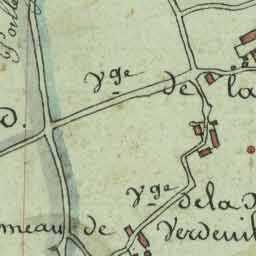 vge
de la
d.
vge
de la
meau de
Verdeuil